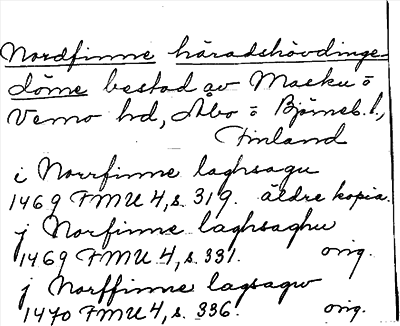 Nordfinne häradshövdinge-
döme bestod av Masku o
Vemo hd, Åbo o Björneb. l.,
Finland
i Norrfinne laghsagu
1469 FMU 4, s. 319. äldre kopia.
j Norfinne laghsaghu
1469 FMU 4, s. 331. orig.
j Norffinne lagsagw
1470 FMU 4, s. 336. orig.